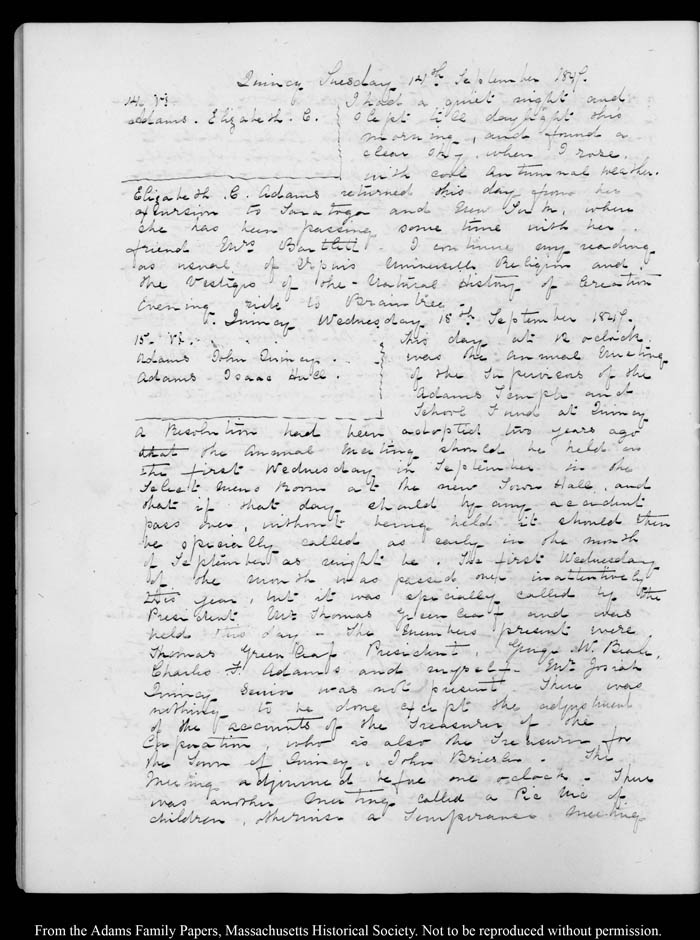 Quincy Tuesday 14th September 1847.
14. VI
Adams. Elizabeth. C.
I had a quiet night and
slept till daylight this
morning, and found a
clear sky when I rose.
with cool Autumnal weather.
Elizabeth. C. Adams returned this day from her
excursion to Saratoga and New York, where
she has been passing some time with her
friend Mrs Bartlett. I continue my reading
as usual of Religion and
the Vestiges of the Natural History of Creation
Evening ride to Braintree.
Quincy Wednesday 15th September 1847.
15. VI.
Adams John Quincy.
Adams Isaac Hull.
This day at 12 o'clock
was the annual Meeting
of the Supervisors of the
Adams Temple and
School Fund at Quincy
A Resolution had been adopted two years ago
that the Annual Meeting should be held on
the first Wednesday in September in the
Select Mens Room at the new Town Hall, and
that if that day should by any accident
pass over, without being held it should then
be specially called as early in the month
of September as might be. The first Wednesday
of the month was passed over inattentively
this year, but it was specially called by the
President Mr Thomas Greenleaf and was
held this day. The Members present were
Thomas Greenleaf President, George W. Beale,
Charles F. Adams and myself. Mr Josiah
Quincy Senior was not present. There was
nothing to be done except the adjustment
of the accounts of the Treasurer of the
Corporation, who is also the Treasurer for
the Town of Quincy, John Briesler. The
Meeting adjourned before one o'clock. There
was another Meeting called a Pic Nic of
children, otherwise a Temperance Meeting
From the Adams Family Papers, Massachusetts Historical Society. Not to be reproduced without permission.